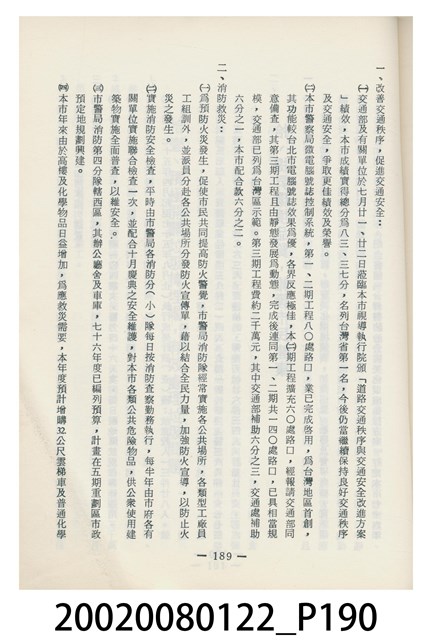 一、改善交通秩序，促進交通安全：
㈠交通部及有關單位於七月廿一、廿二日蒞臨本市視導執行院頒「道路交通秩序與交通安全改進方案
」績效，本市成績實得總分爲八三、三七分，名列台灣省第一名，今後仍當繼續保持良好交通秩序
及交通安全，爭取更佳績效及榮譽。
㈡本市警察局微電腦號誌控制系統，第一、二期工程八○處路口，業已完成啓用，爲台灣地區首創，
其功能較台北市電腦號誌效果爲優，各界反應極佳，本㈡期工程擴充六○處路口，經報請交通部同
意備查，其第三期工程且由靜態發展爲動態，完成後連同第一、二期共一四○處路口，已具相當規
模，交通部已列爲台灣區示範。第三期工程費約二千萬元，其中交通部補助六分之三，交通處補助
六分之一，本市配合款六分之二。
二、消防救災：
㈠爲預防火災發生，促使市民共同提高防火警覺，市警局消防隊經常實施各公共場所，各類型工廠員
工組訓外，並派員分赴各公共場所分發防火宣傳單，藉以結合全民力量，加強防火宣導，以防止火
災之發生。
㈡實施消防安全檢查，平時由市警局各消防分（小）隊每日按消防查察勤務執行，每半年由市府各有
關單位實施聯合檢查一次，並配合十月慶典之安全維護，對本市各類公共危險物品，供公衆使用建
築物實施全面普查，以維安全。
㈢市警局消防第四分隊轄西區，其辦公廳舍及車庫，七十六年度已編列預算，計畫在五期重劃區市政
預定地規劃興建。
㈣本市年來由於高樓及化學物品日益增加，爲應救災需要，本年度預計增購32公尺雲梯車及普通化學
— 189 —
20020080122_P190